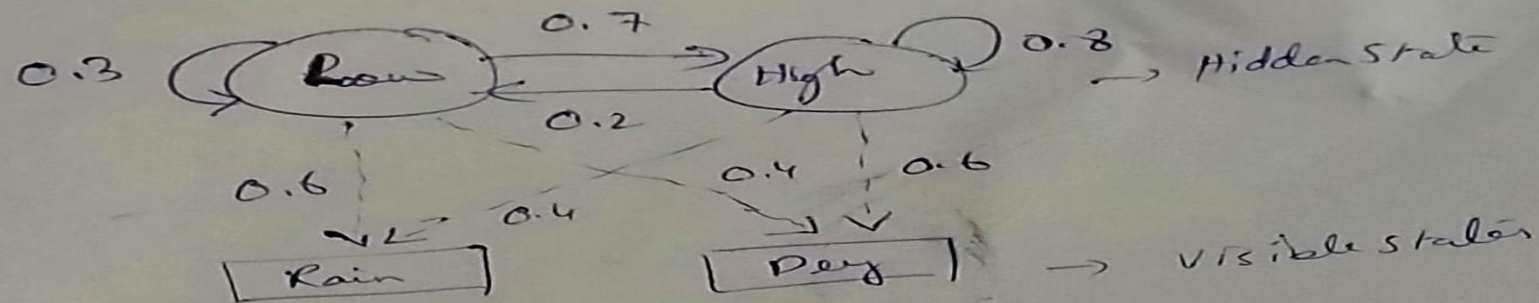 0.7
0.3 Low High 0.8 → Hidden State
0.2
0.6 0.4 0.6
0.4
Rain Dry → Visible states